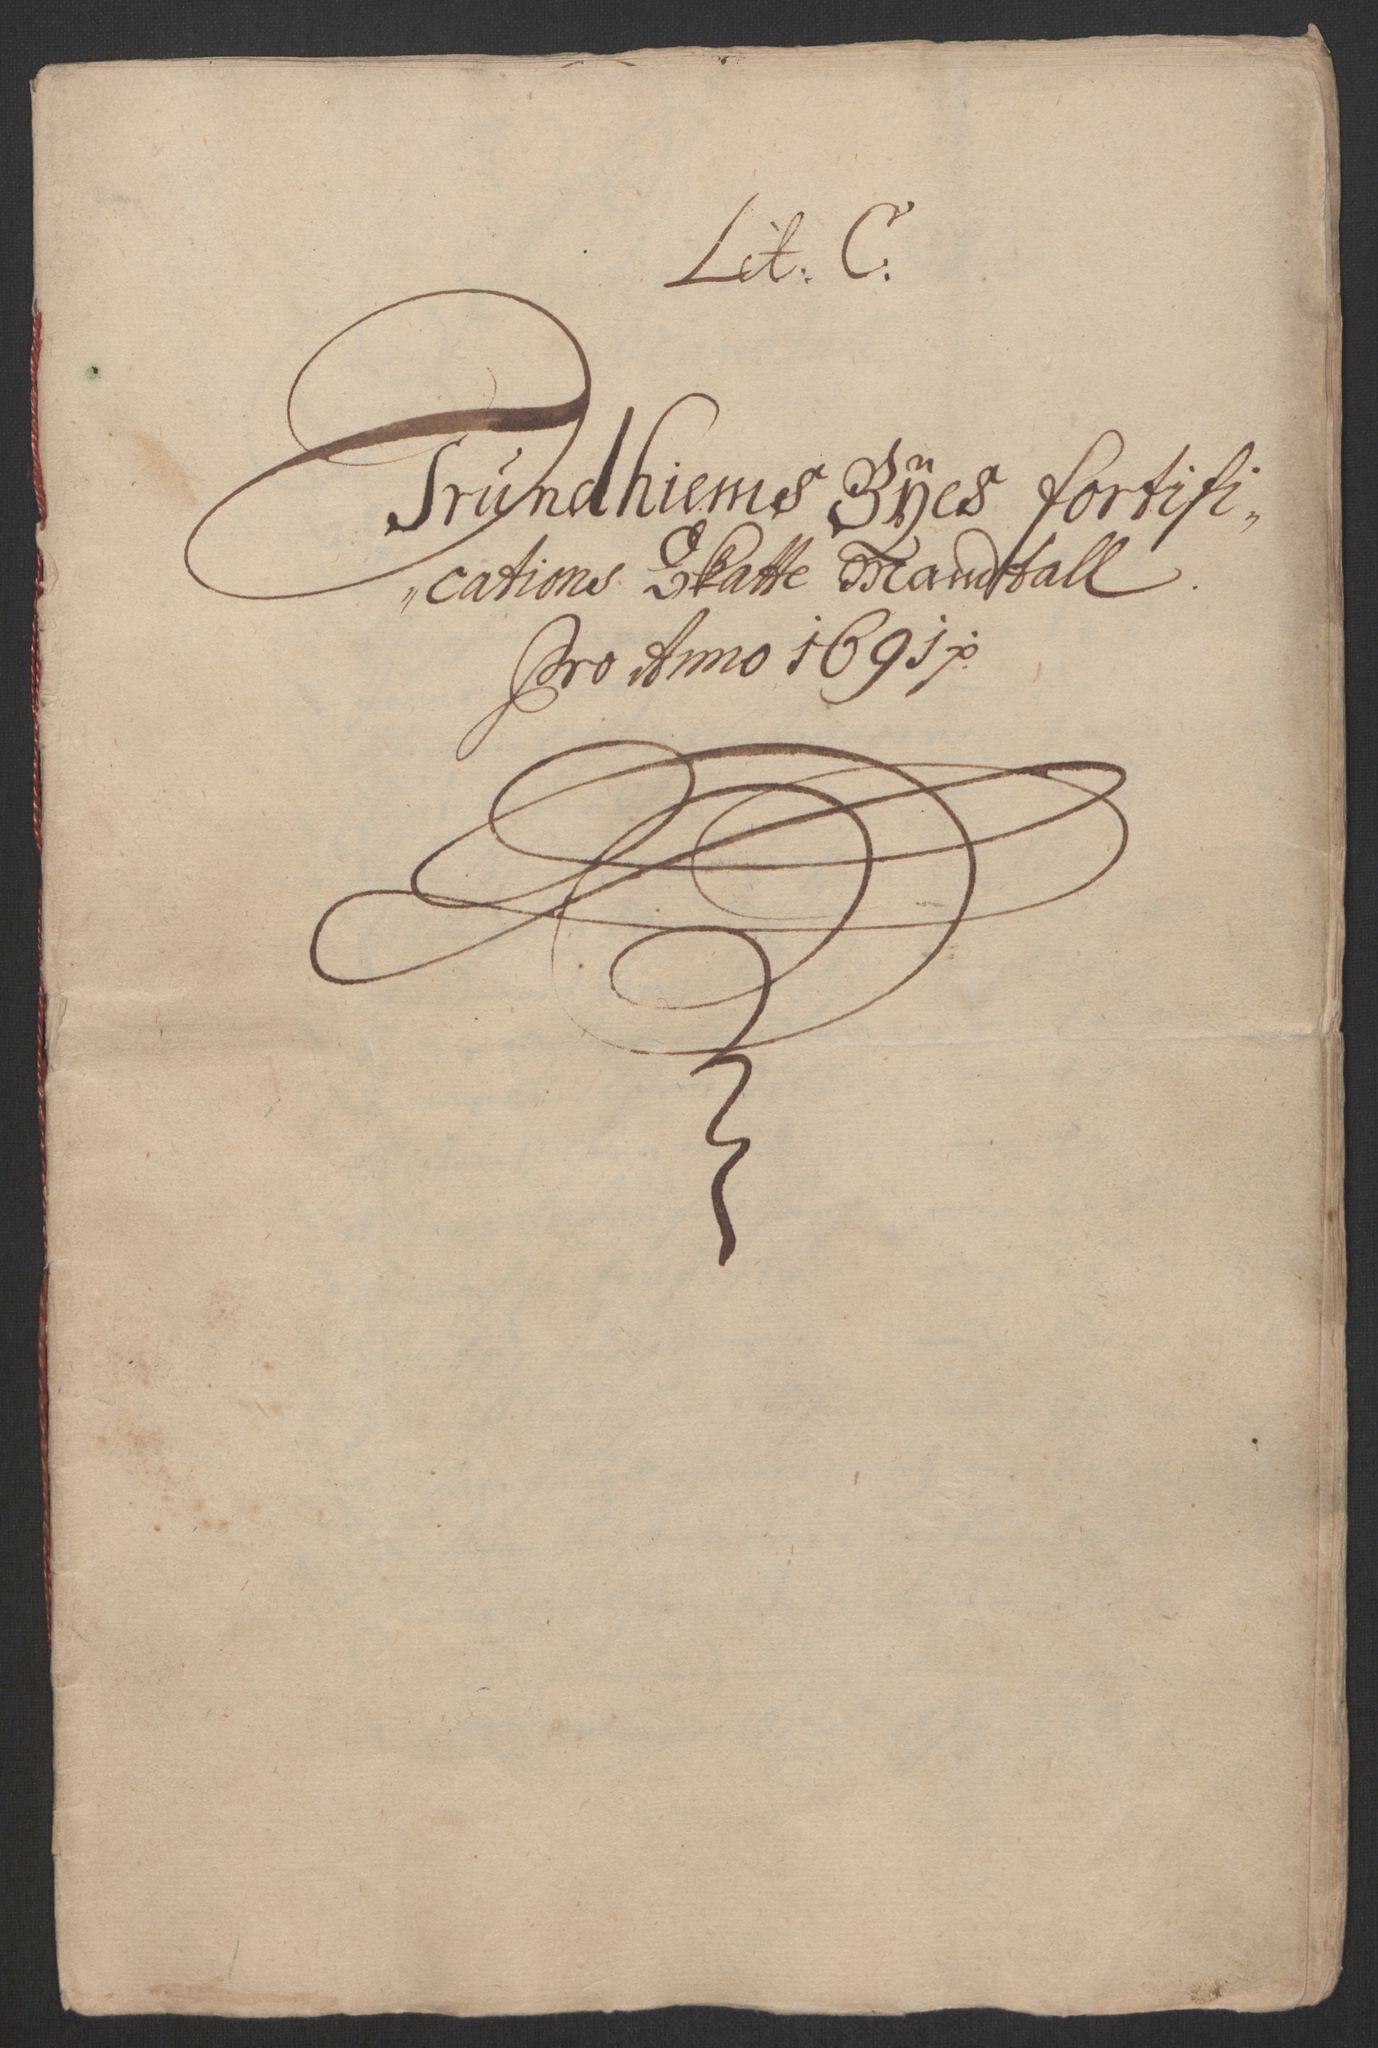 Lit. C.
Trundhiems Bÿes fortifi„
„cations Skatte Mandtall.
Pro Anno 1691 p.